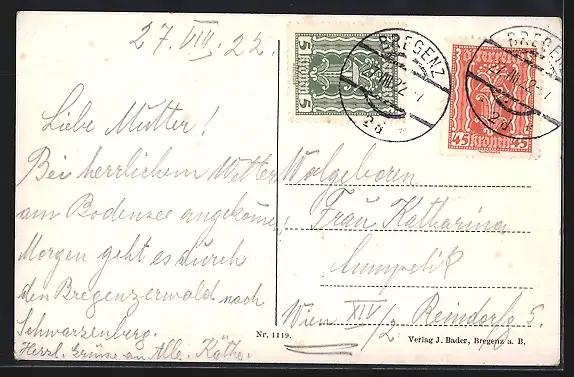 27. VIII. 22.
Liebe Mutter!
Bei herrlichem Wetter
am Bodensee angekommen,
Morgen geht es durch
den Bregenzerwald nach
Schwarzenberg.
Herzl. Grüsse an Alle. Käthe.
5 5
BREGENZ
27.VIII.22
2a
*
BREGENZ
27.VIII.22
2a
*
45 45
Wolgeboren
Frau Katharina
Wien XIV/2 Reindorfg 5.
Nr. 1119.
Verlag J. Bader, Bregenz a. B.